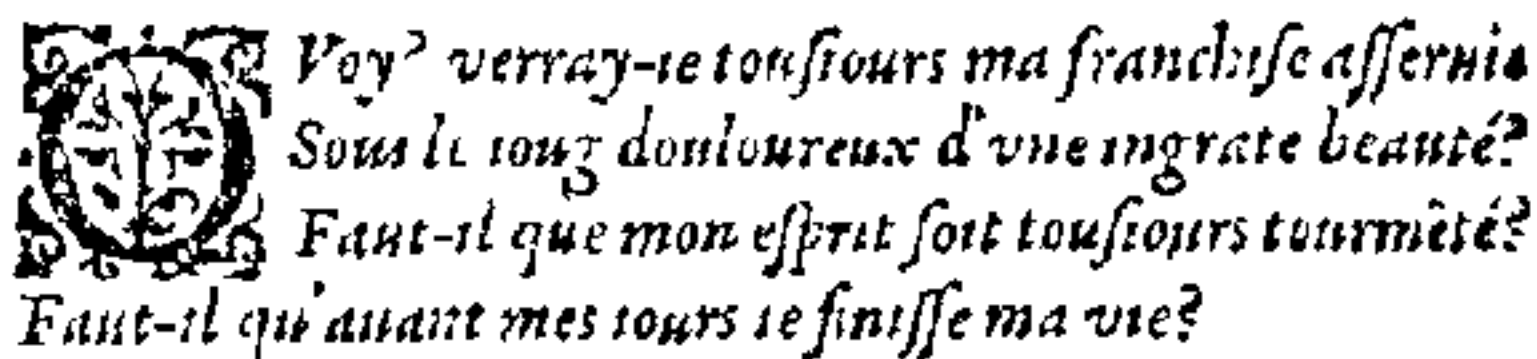 QVoy' verray-ie tousiours ma franchise asseruie
Sous le ioug douloureux d'vne ingrate beauté?
Faut-il que mon esprit soit tousiours tourmẽté?
Faut-il qu'auant mes iours ie finisse ma vie?